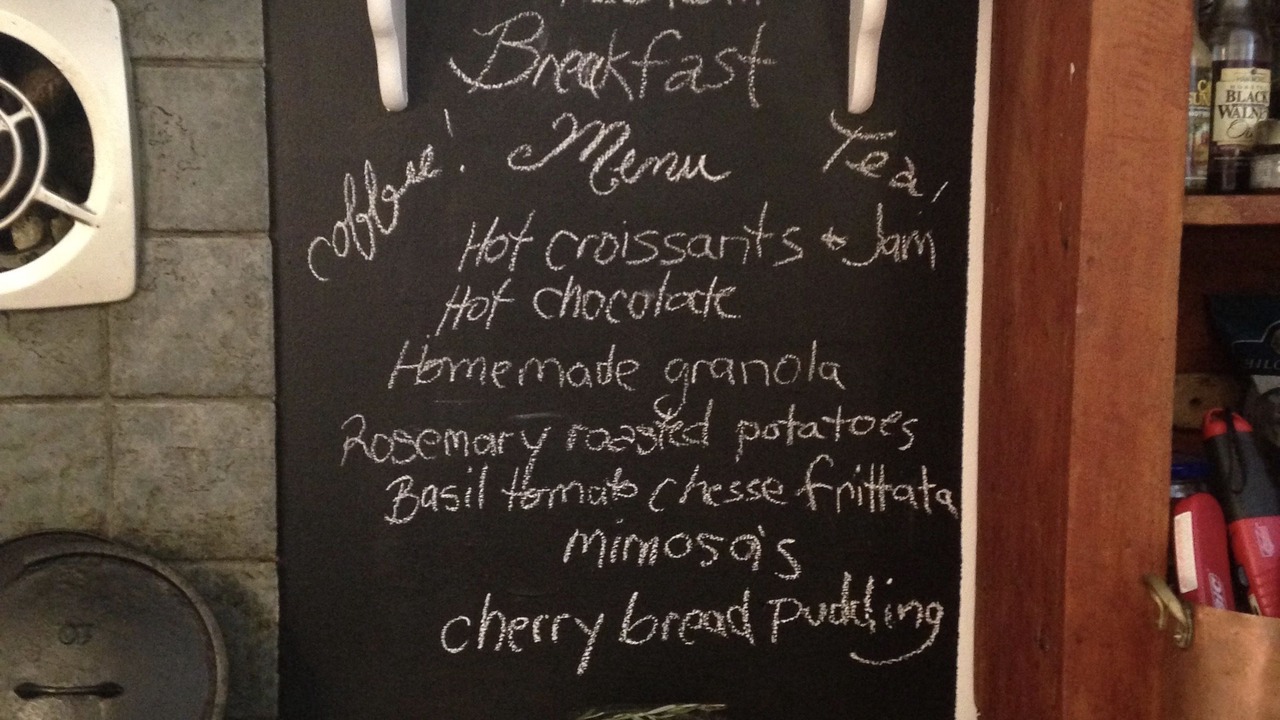 Breakfast
Menu
coffee!
Tea!
Hot croissants & Jam
Hot chocolate
Homemade granola
Rosemary roasted potatoes
Basil tomato chesse frittata
mimosa's
cherry bread pudding
BLACK
WALNUT